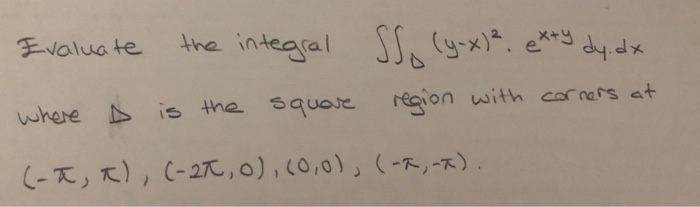 Evaluate the integral ∬_D (y-x)². e^{x+y} dy.dx
where D is the square region with corners at
(-π, π), (-2π,0), (0,0), (-π,-π).